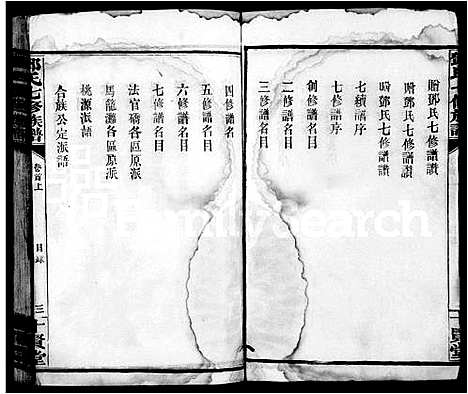 鄧氏七修族譜
貽鄧氏七修譜讚
贈鄧氏七修譜讚
七修譜讚
七續譜序
七修譜序
創修譜名目
二修譜名目
三修譜名目
四修譜名
五修譜名目
六修譜名目
七修譜名目
法官礄各區原派
馬龍灘各區原派
桃源派語
合族公定派語
鄧氏七修族譜
卷首上
目錄
三
十賢堂
FamilySearch